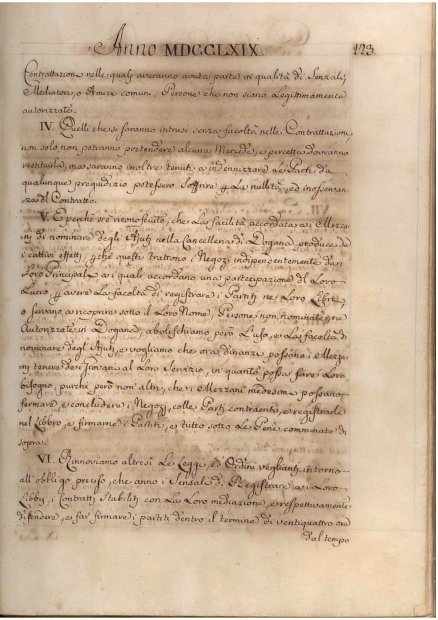 Anno MDCCLXIX. 123
Contrattazioni nelle quali averanno avuta parte in qualità di Senzali,
Mediatori, o Amici comuni, Persone che non siano legittimamente
autorizzate.
IV. Quelli che si saranno intrusi senza facoltà nelle Contrattazioni,
non solo non potranno pretendere alcuna Mercede, e percetta dovranno
restituirla, ma saranno inoltre tenuti a indennizzare le Parti da
qualunque pregiudizio potessero soffrire p La nullità, ed inosservan-
za del Contratto.
V. E perchè si è riconosciuto, che La facilità accordata ai Mezza-
ni di nominare degli Ajuti nella Cancelleria di Dogana, produce de
i cattivi effetti, p che questi trattono i Negozi indipendentemente da
Loro Principali, ai quali accordano una partecipazione del Loro
Lucro, p avere La facoltà di registrare i Partiti ne Loro Libri,
o servano a ricoprire sotto il Loro Nome, Persone non nominate, e
Autorizzate in Dogana, abolischiamo però L'uso, e La facoltà di
nominare degli Ajuti, e vogliamo che ora dinanzi possano i Mezza-
ni tenere dei Giovani al Loro Servizio, in quanto possa fare Loro
bisogno, purchè però non altri, che i Mezzani medesimi possano
fermare, e concludere i Negozj, colle Parti contraenti, e registrarli
nel Libbro, e firmarne i Partiti, e tutto sotto Le Pene comminate di
sopra.
VI. Rinnoviamo altresi Le Leggi, ed Ordini veglianti intorno
all'obbligo preciso, che anno i Sensali di Registrare ai Loro
Libbri, i Contratti Stabiliti con La Loro mediazione, e respettivamente
distendere, e far firmare i partiti dentro il termine di ventiquattro ore
dal tempo